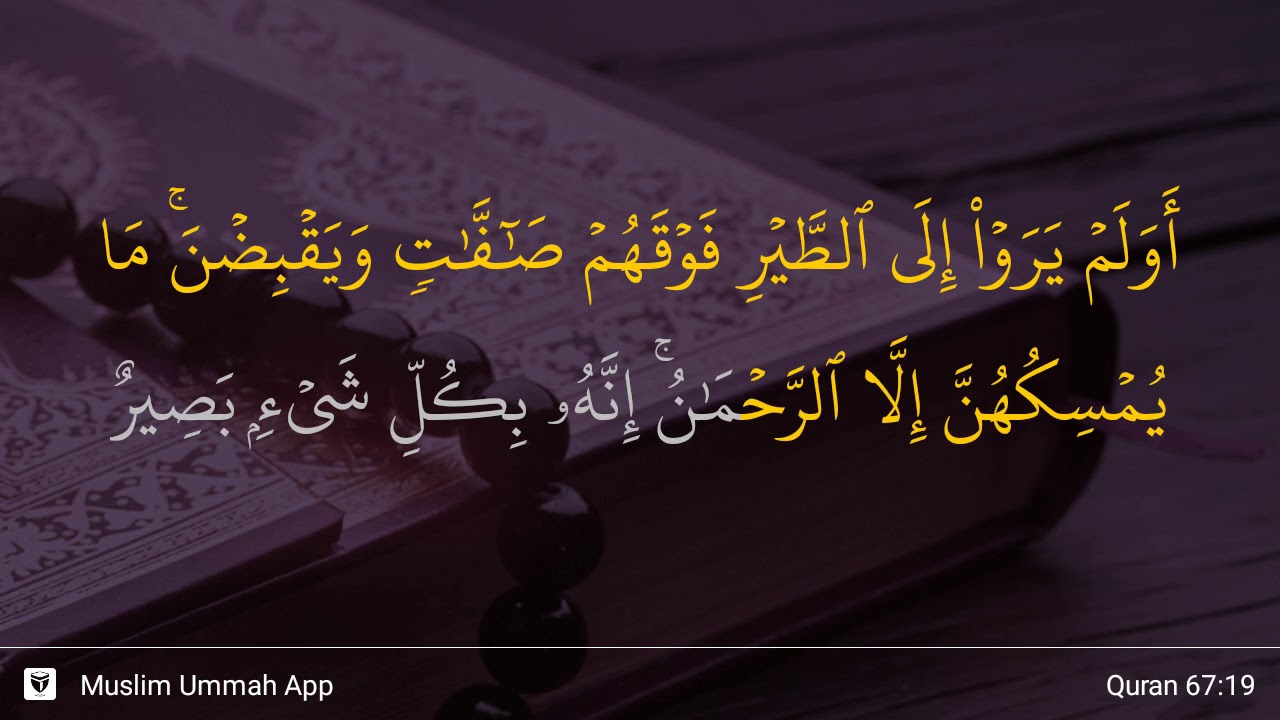 أَوَلَمۡ يَرَوۡاْ إِلَى ٱلطَّيۡرِ فَوۡقَهُمۡ صَـٰٓفَّـٰتٖ وَيَقۡبِضۡنَۚ مَا
يُمۡسِكُهُنَّ إِلَّا ٱلرَّحۡمَـٰنُۚ إِنَّهُۥ بِكُلِّ شَيۡءِۭ بَصِيرٌ
Muslim Ummah App
Quran 67:19